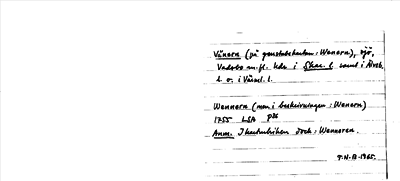 Vänern (på generalstabskartan: Wenern), sjö,
Vadsbo m. fl. hdr i Skar. l. samt i Älvsb.
l. o. i Värml. l.
Wennern (men i beskrivningen: Wenern)
1755 LSA p36
Anm. I kartrubriken dock: Wenneren.
1965.